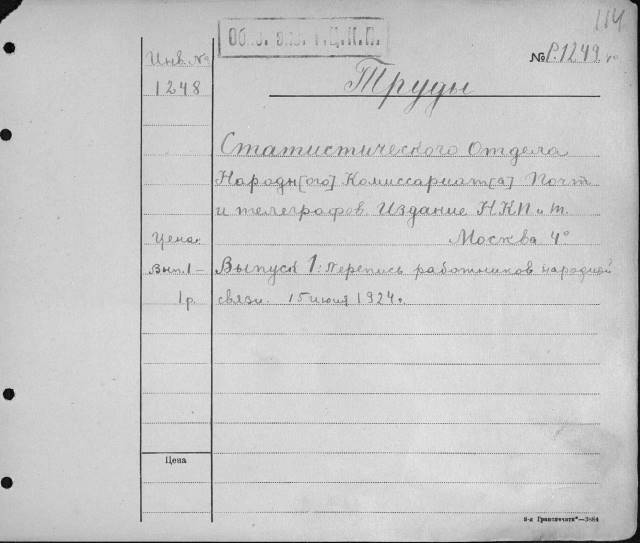 114
Инв. №
1248
№ Р.1249 г°
Труды
Статистического Отдела
Народн[ого] Комиссариат[а] Почт
и телеграфов. Издание Н.К.П. и Т.
Цена:
Москва 4°
Вып. 1 –
Выпуск 1: Перепись работников народной
1 р.
связи. 15 июня 1924 г.
Цена
3884